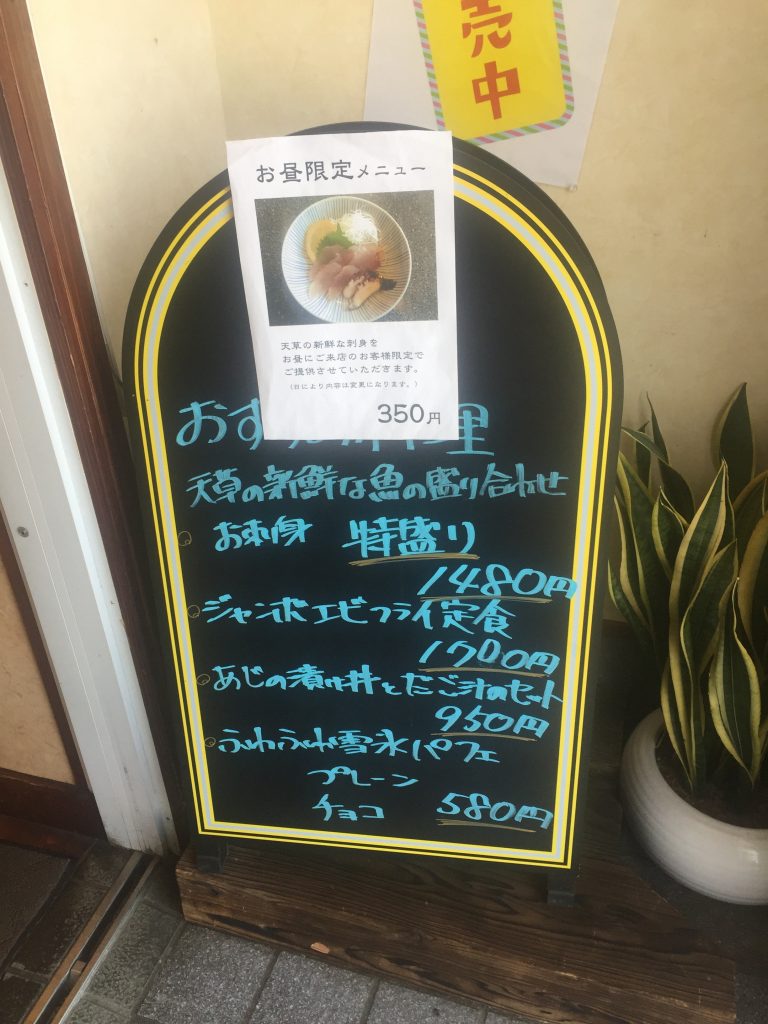 売中
お昼限定メニュー
天草の新鮮な刺身を
お昼にご来店のお客様限定で
ご提供させていただきます。
(日により内容は変更になります。)
350円
おす
理
天草の新鮮な魚の盛り合わせ
お刺身 特盛り
1480円
ジャンボエビフライ定食
1700円
あじの漬け丼とだご汁のセット
950円
ふわふわ雪氷パフェ
プレーン
チョコ 580円